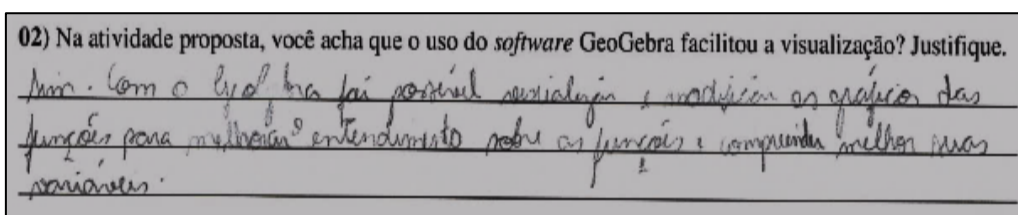 02) Na atividade proposta, você acha que o uso do software GeoGebra facilitou a visualização? Justifique.
Sim. Com o foi possível e modificar os gráficos das
funções para melhorar o entendimento sobre as funções e compreender melhor suas
variáveis.